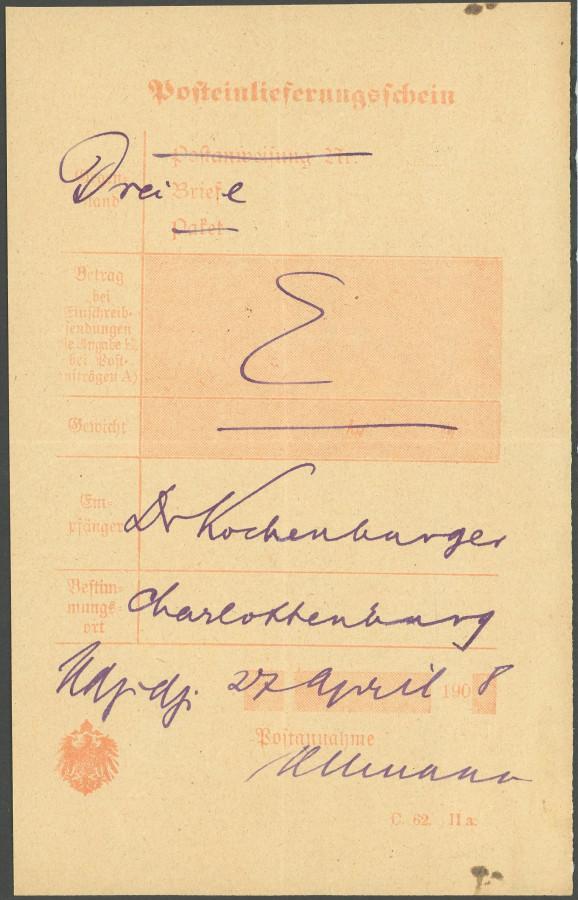 Posteinlieferungsschein
Postanweisung Nr.
Drei Briefe
Paket
Betrag
bei
Einschreib-
sendungen
bei Post-
aufträgen A)
E
Gewicht
Em-
pfänger
Dr Kochenburger
Bestim-
mungs-
ort
Charlottenburg
Udjidji 27 April 1908
Postannahme
C. 62. II a.